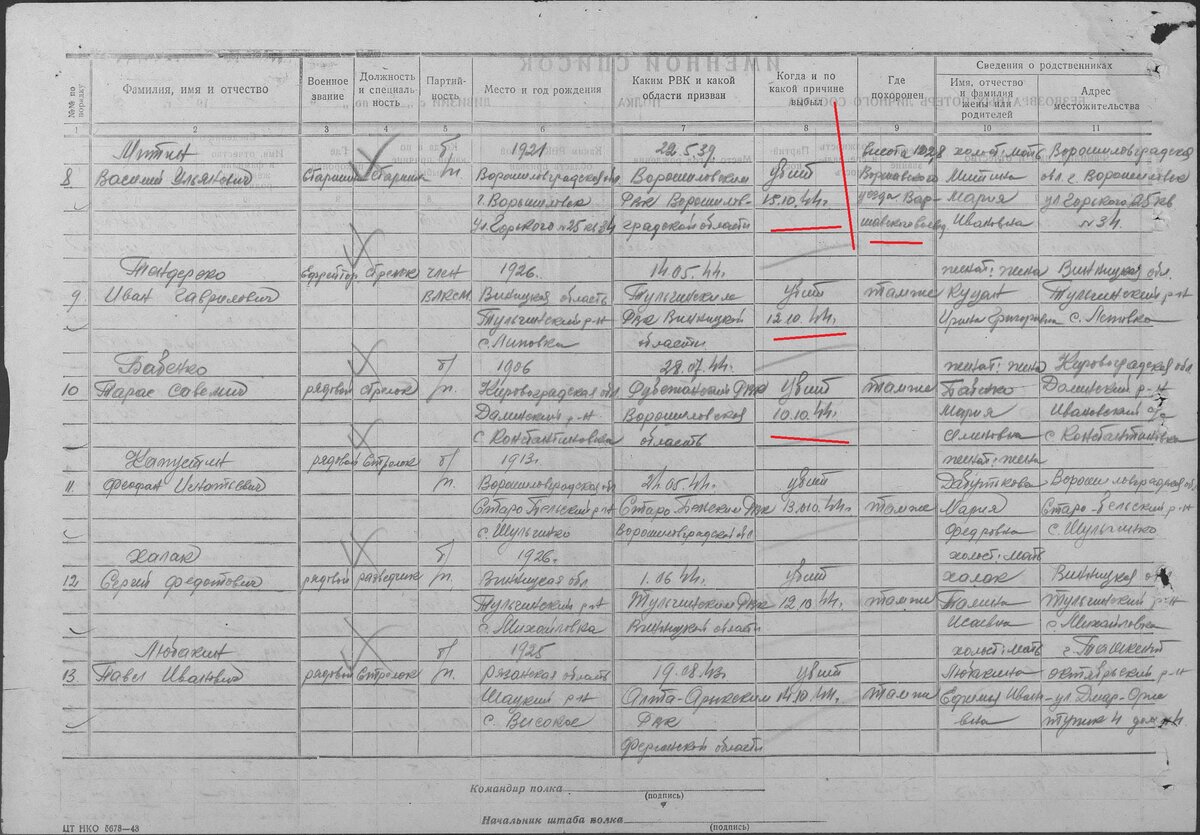 ИМЕННОЙ СПИСОК
№№ по порядку
Фамилия, имя и отчество
Военное звание
Должность и специальность
Партийность
Место и год рождения
Каким РВК и какой области призван
Когда и по какой причине выбыл
Где похоронен
Сведения о родственниках
Имя, отчество и фамилия жены или родителей
Адрес местожительства
1 2 3 4 5 6 7 8 9 10 11
Митин б/ 1921 22.5.39 высота 102,8 холост: мать Ворошиловградская
8 Василий Ульянович Старшин п. Ворошиловградская обл Ворошиловским убит Митина обл. г. Ворошиловск
г. Ворошиловск РВК Ворошилов- 15.10.44г. уезда Вар- Мария ул Горского 25 кв
Ул. Горского №25 кв 34 градской области шавского воевод Ивановна №34.
Тандерено Ефрейтор Стрелок член 1926. 14.05.44г. женат: жена Винницкая обл.
9 Иван Гаврилович ВЛКСМ. Винницкая область Тульчинским убит там же Тульчинский р-н
Тульчинский р-н РВК Винницкой 12.10.44г. Ирина Григорьевна с. Липовка
с. Липовка области
Бабенко б/ 1906 28.07.44г. женат: жена Кировоградская обл
10 Тарас рядовой стрелок п. Кировоградская обл РВК убит там же Бабенко Долинский р-н
Долинский р-н Ворошиловская 10.10.44г. Мария Ивановский с/с
с Константиновка область Семеновна с Константиновка
Капустин рядовой Стрелок б/ 1913г. женат: жена
11. Феофан Игнатьевич п. Ворошиловградская обл 21.05.44г. убит Ворошиловградская об
Старо Бельский р-н Старо Бельским РВК 13.10.44г. там же Мария Старо-бельский р-н
с. Шульгинко Ворошиловградской обл Федровна с. Шульгинко
Халак б/ 1926г. холост: мать
12 Сергий Федотович рядовой разведчик п. Винницкая обл 1.06.44г. убит халак Винницкая обл
Тульчинский р-н Тульчинским РВК 12.10.44г. там же Галина Тульчинский р-н
с. Михайловка Винницкой области Исаевна с. Михайловка
Любакин б/ 1925 холост: мать г. Ташкент
13. Павел Иванович рядовой Стрелок п. Рязанская область 19.08.43г. убит Любакина октябрьский р-н
Шацкий р-н Алты-Арыкским 14.10.44г. там же Ефимия Ивано-
с. Высокое РВК вна тупик 4 дом
Ферганской области
Командир полка
(подпись)
Начальник штаба полка
(подпись)
ЦТ НКО 5673—43